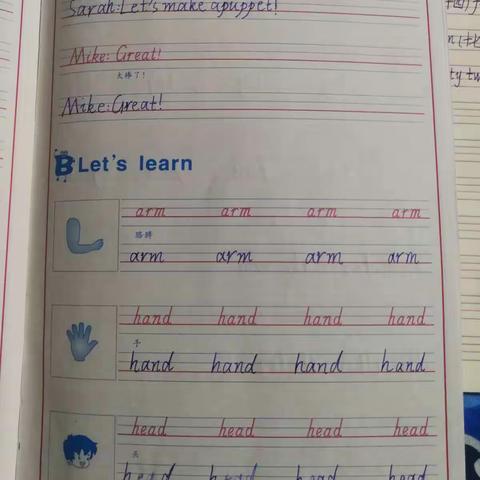 Sarah: Let's make a puppet!
Mike: Great!
太棒了!
Mike: Great!
B Let's learn
arm arm arm arm
胳膊
arm arm arm arm
hand hand hand hand
手
hand hand hand hand
head head head head
头
head head head head